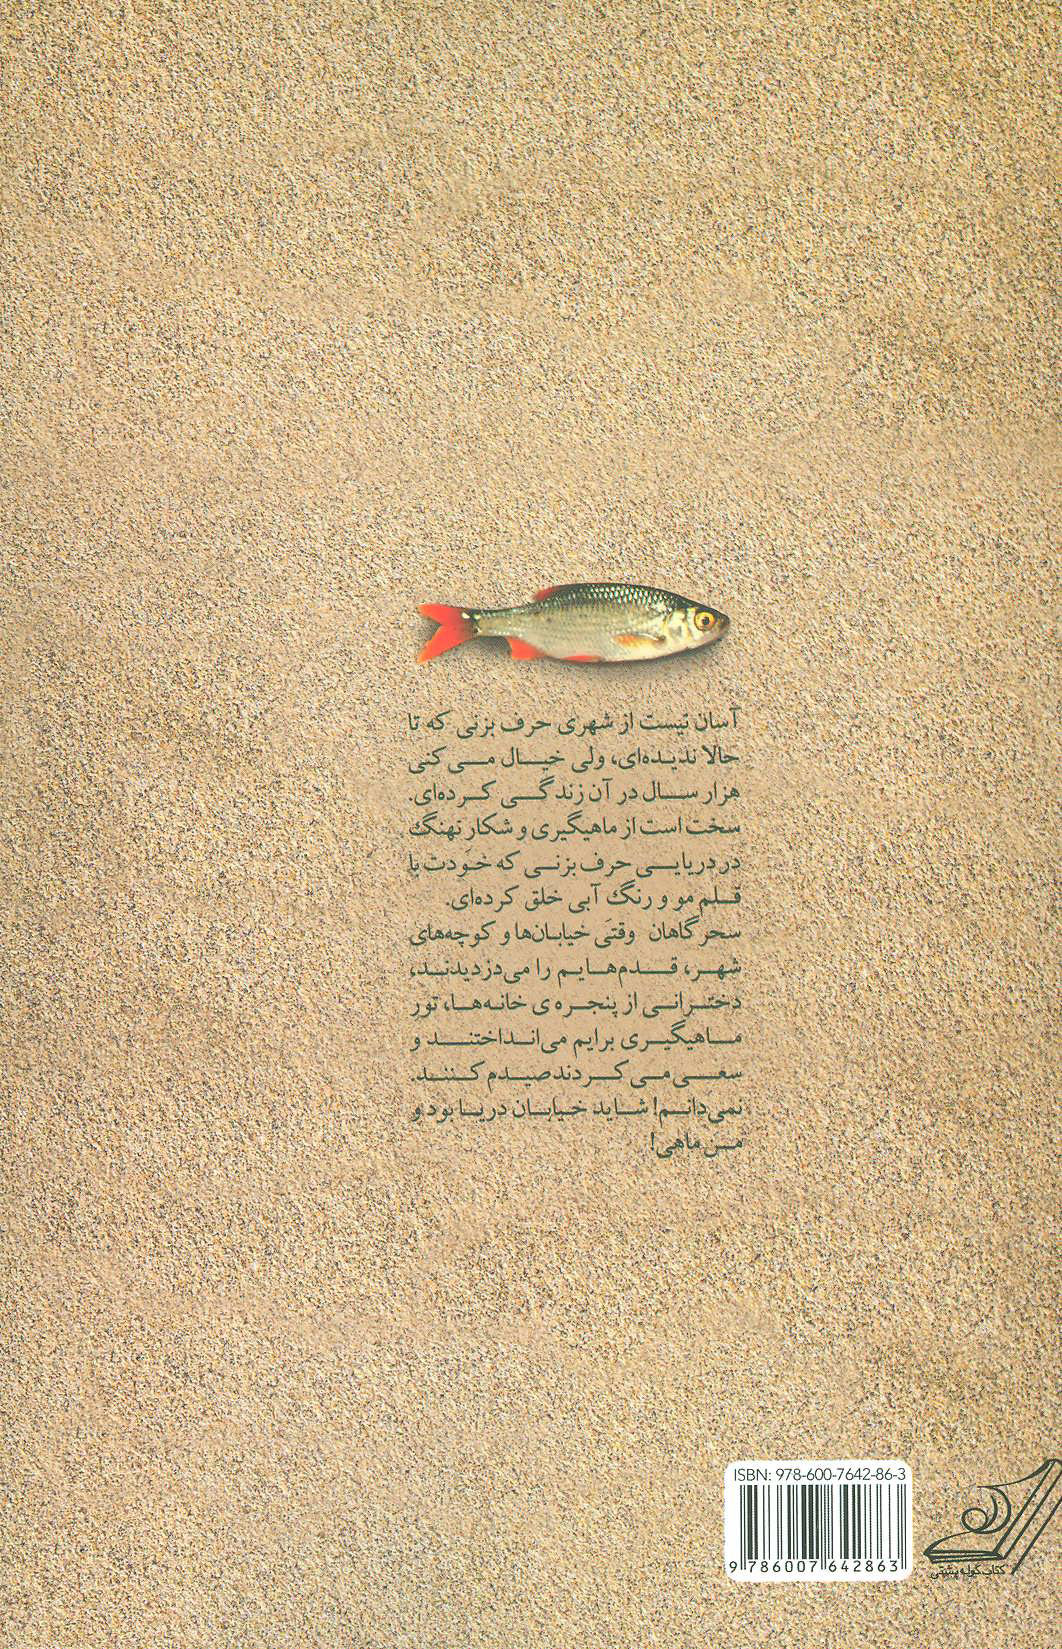 آسان نیست از شهری حرف بزنی که تا
حالا ندیده‌ای، ولی خیال می‌کنی
هزار سال در آن زندگی کرده‌ای.
سخت است از ماهیگیری و شکار نهنگ
در دریایی حرف بزنی که خودت با
قلم مو و رنگ آبی خلق کرده‌ای.
سحرگاهان وقتی خیابان‌ها و کوچه‌های
شهر، قدم‌هایم را می‌دزدیدند،
دخترانی از پنجره ی خانه‌ها، تور
ماهیگیری برایم می‌انداختند و
سعی می‌کردند صیدم کنند.
نمی‌دانم! شاید خیابان دریا بود و
من ماهی!
ISBN: 978-600-7642-86-3
9 786007 642863
کتاب کوله پشتی